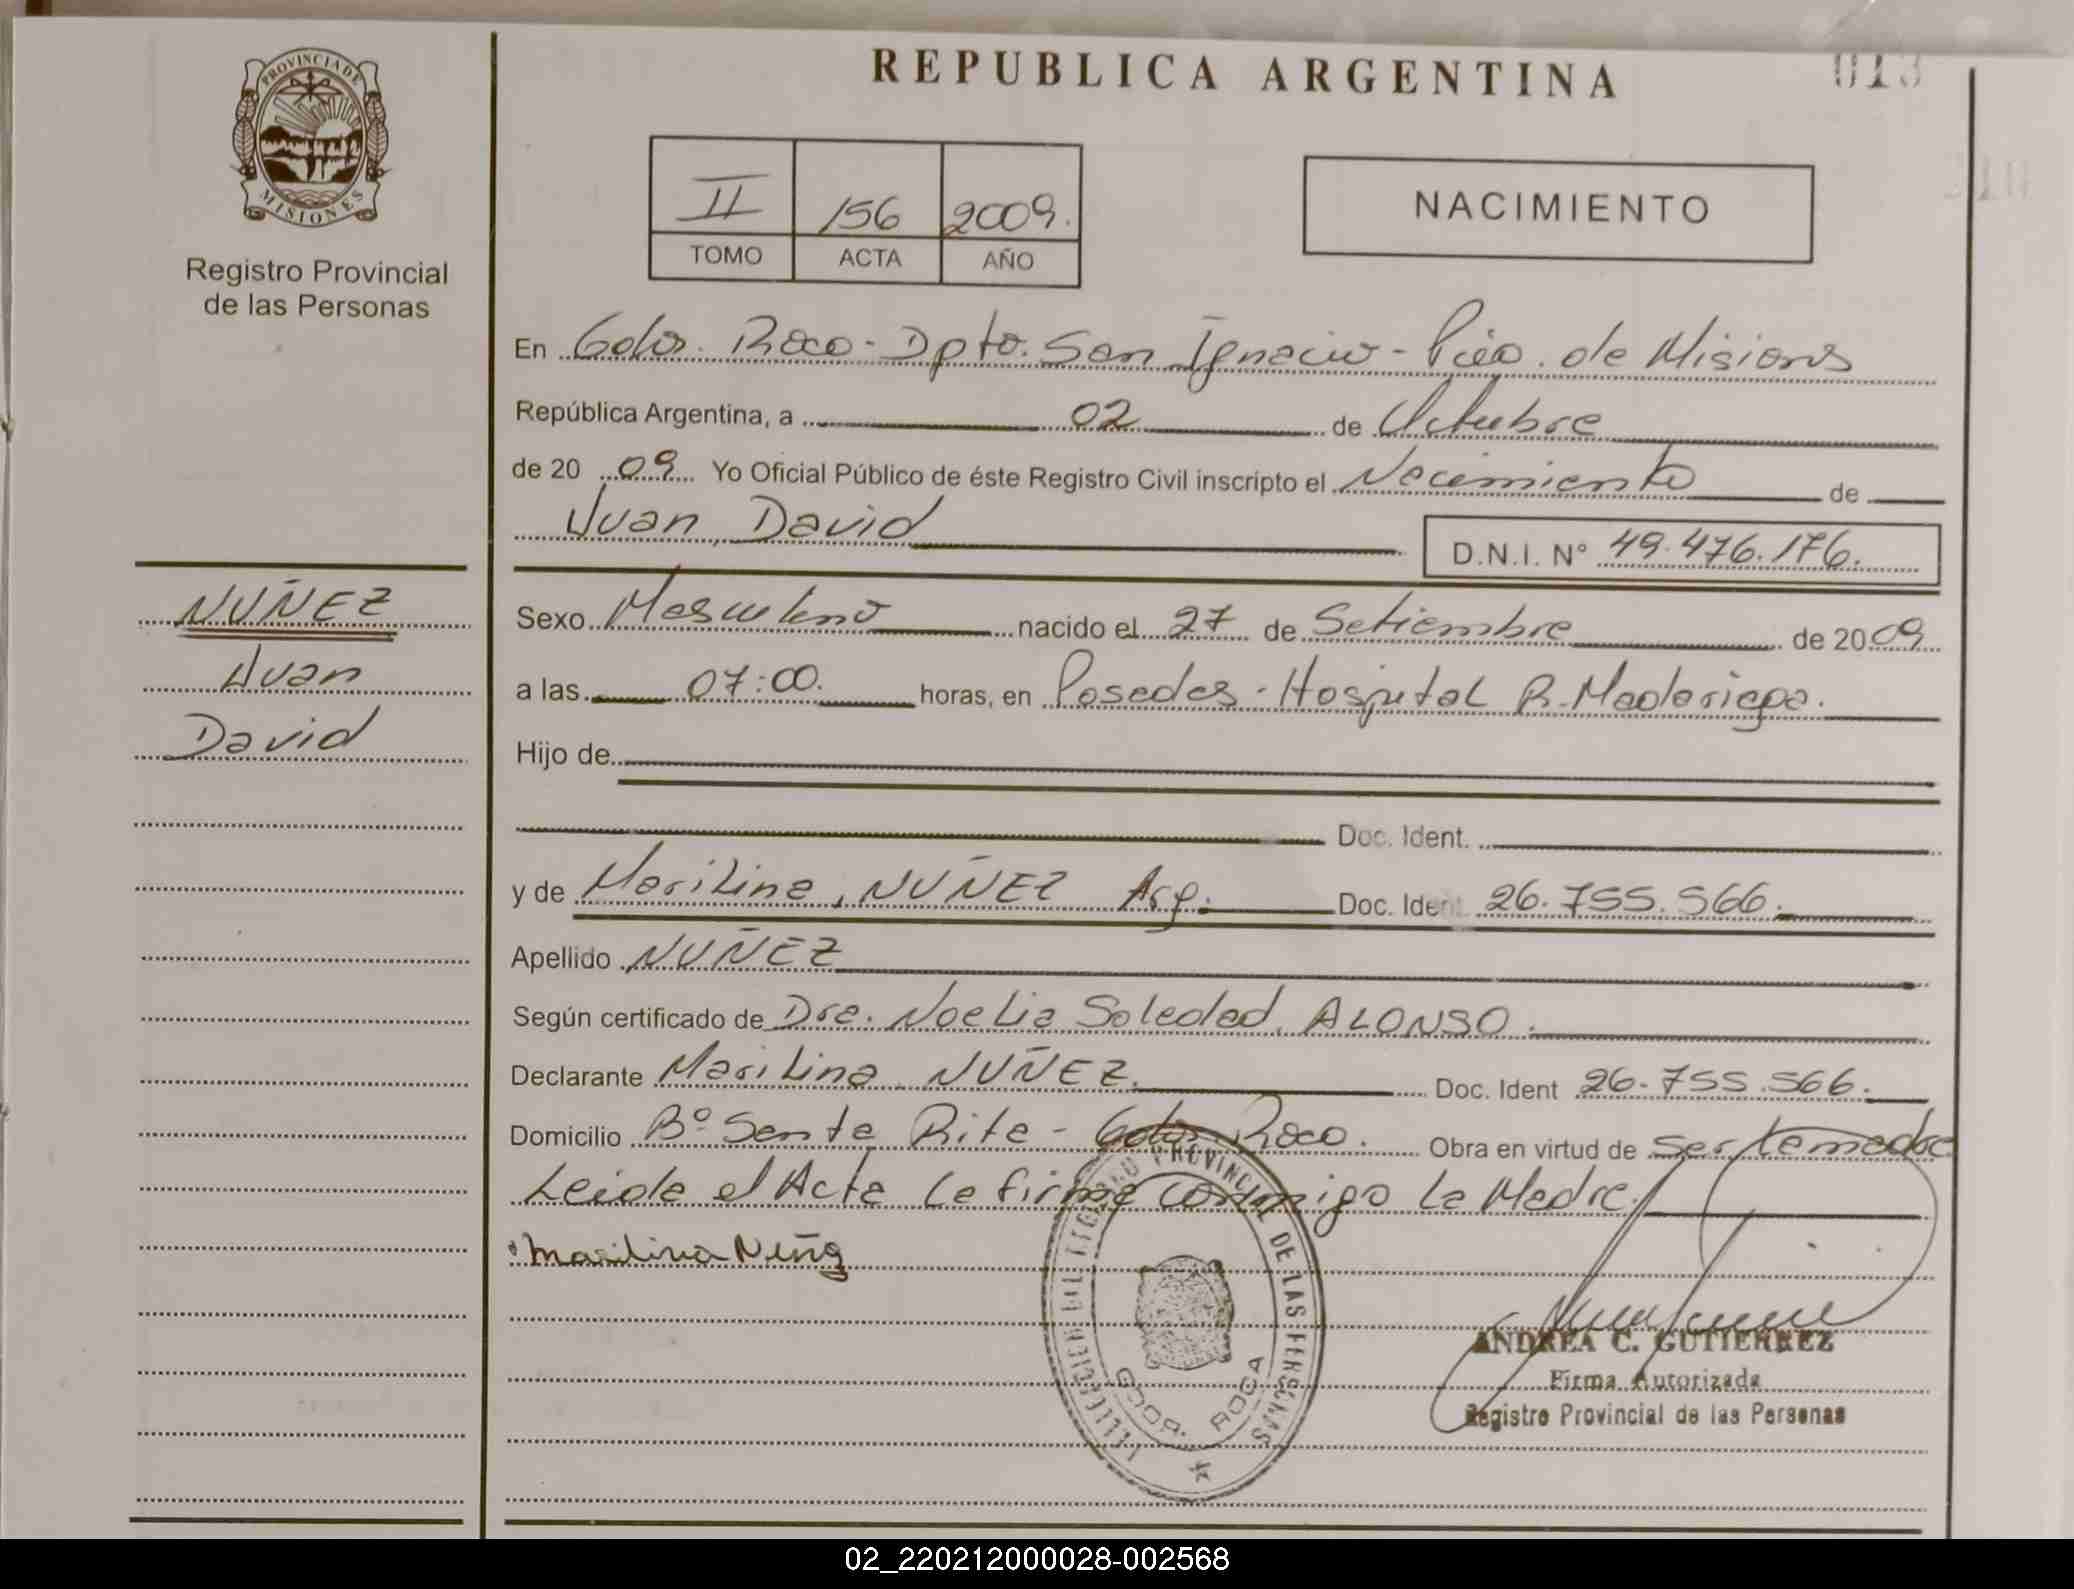 REPUBLICA ARGENTINA
013
PROVINCIA DE MISIONES
Registro Provincial
de las Personas
II 156 2009.
TOMO ACTA AÑO
NACIMIENTO
En Gdor. Roca - Dpto. San Ignacio - Pcia. de Misiones
República Argentina, a 02 de Octubre
de 20 09 Yo Oficial Público de éste Registro Civil inscripto el Nacimiento de
Juan, David D.N.I. N° 49.476.176.
NUÑEZ
Juan
David
Sexo Masculino nacido el 27 de Setiembre de 2009
a las 07:00. horas, en Posadas - Hospital R. Madariaga.
Hijo de
Doc. Ident.
y de Marilina, NUÑEZ Arg. Doc. Ident 26.755.566.
Apellido NUÑEZ
Según certificado de Dra. Noelia Soledad ALONSO.
Declarante Marilina NUÑEZ. Doc. Ident 26.755.566.
Domicilio B° Santa Rita - Gdor. Roca. Obra en virtud de ser la madre
Leida el Acta la firma conmigo la Madre.
Marilina Nuñez
PROVINCIAL DE LAS PERSONAS
GDOR. ROCA
ANDREA C. GUTIERREZ
Firma Autorizada
Registro Provincial de las Personas
02_220212000028-002568